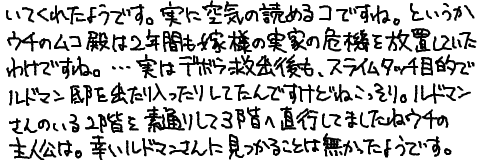 いてくれたようです。実に空気の読めるコですね。というか
ウチのムコ殿は2年間も嫁様の実家の危機を放置していた
わけですね。…実はデボラ救出後も、スライムタッチ目的で
ルドマン邸を出たり入ったりしてたんですけどねこっそり。ルドマン
さんのいる2階を素通りして3階へ直行してましたねウチの
主人公は。幸いルドマンさんに見つかることは無かったようです。